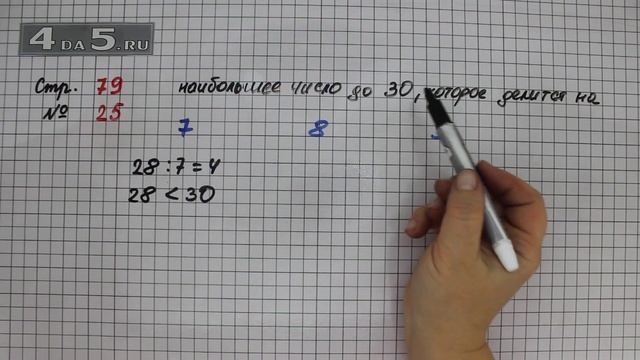 4 DA 5.RU
Стр. 79 наибольшее число до 30, которое делится на
№ 25
7 8
28 : 7 = 4
28 < 30